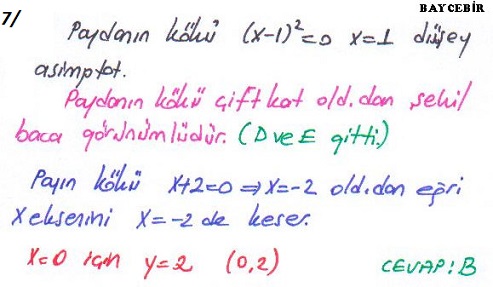 BAYCEBİR
7/
Paydanın kökü (x-1)²=0 x=1 düşey
asimptot.
Paydanın kökü çift kat old.dan şekil
baca görünümlüdür. (D ve E gitti.)
Payın kökü x+2=0 ⇒ x=-2 old.dan eğri
x eksenini x=-2 de keser.
x=0 için y=2 (0,2) CEVAP: B